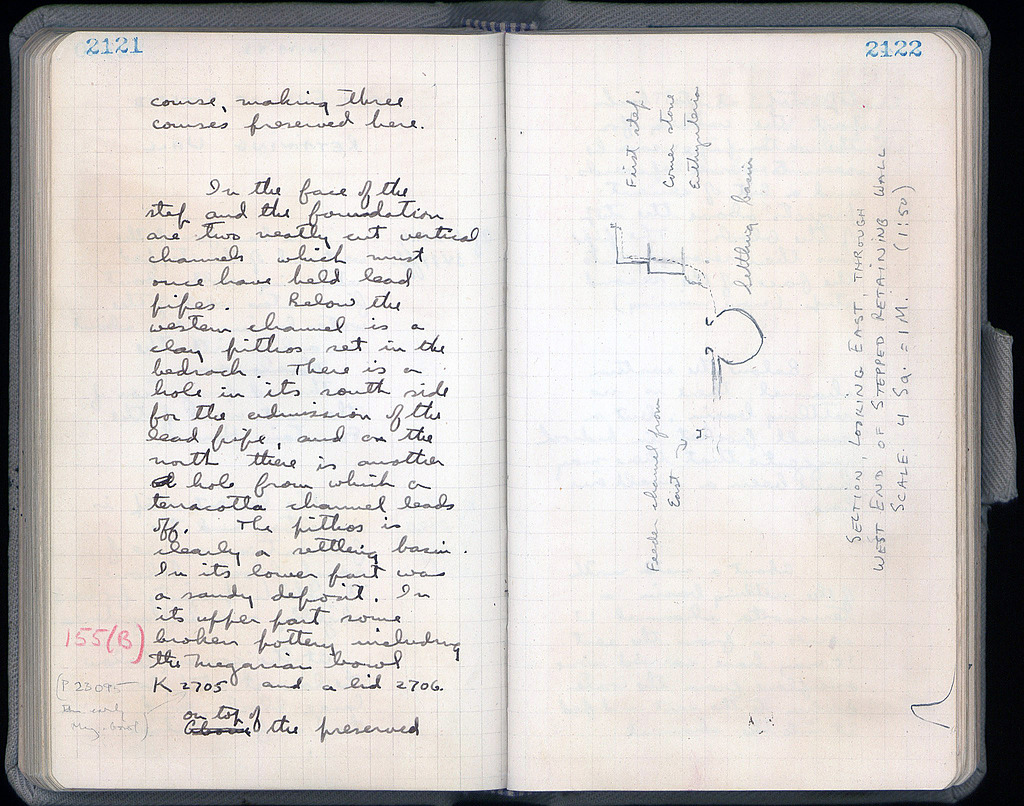 2121
course, making three
courses preserved here.
In the face of the
step and the foundation
are two neatly cut vertical
channels which must
once have held lead
pipes. Below the
western channel is a
clay pithos set in the
bedrock. There is a
hole in its south side
for the admission of the
lead pipe, and on the
north there is another
hole from which a
terracotta channel leads
off. The pithos is
clearly a settling basin.
In its lower part was
a sandy deposit. In
its upper part some
155(B) broken pottery including
the Megarian bowl
K 2705 and a lid 2706.
(P 23095
Meg. bowl)
on top of
Above the preserved
2122
First step.
Corner stone
Euthynteria
Settling basin
Feeder channel from
East
SECTION, LOOKING EAST, THROUGH
WEST END OF STEPPED RETAINING WALL
SCALE 4 Sq. = 1 M. (1:50)